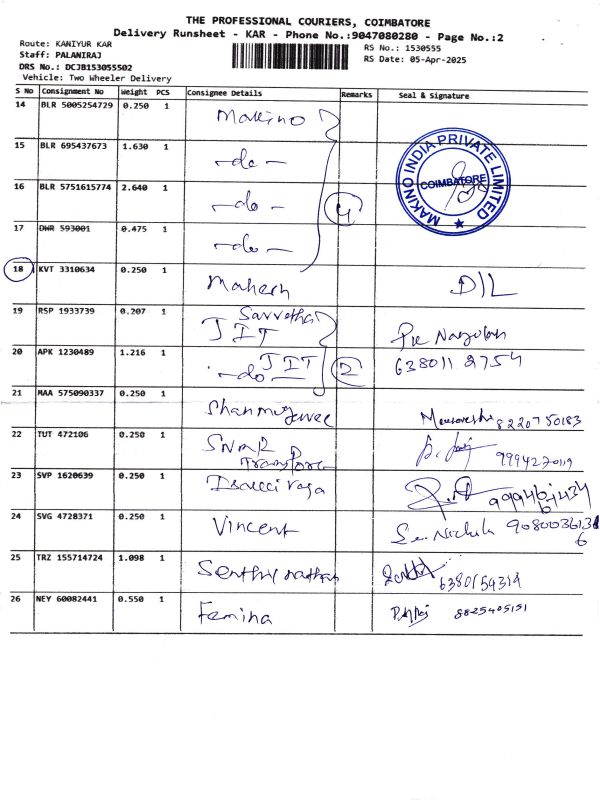 THE PROFESSIONAL COURIERS, COIMBATORE
Delivery Runsheet - KAR - Phone No.:9047080280 - Page No.:2
Route: KANIYUR KAR
Staff: PALANIRAJ
DRS No.: DCJB153055502
Vehicle: Two Wheeler Delivery
RS No.: 1530555
RS Date: 05-Apr-2025
S No Consignment No Weight PCS Consignee Details Remarks Seal & Signature
14 BLR 5005254729 0.250 1 Makino
15 BLR 695437673 1.630 1 -do-
16 BLR 5751615774 2.640 1 -do- 4
17 DWR 593001 0.475 1 -do-
MAKINO INDIA PRIVATE LIMITED
COIMBATORE
18 KVT 3310634 0.250 1 Mahesh D/L
19 RSP 1933739 0.207 1 JIT
20 APK 1230489 1.216 1 -do- JIT 2 638011 2754
21 MAA 575090337 0.250 1 8220750183
22 TUT 472106 0.250 1 9994270119
23 SVP 1620639 0.250 1
24 SVG 4728371 0.250 1 Vincent
25 TRZ 155714724 1.098 1 6380154314
26 NEY 60082441 0.550 1 Femina 8825405151